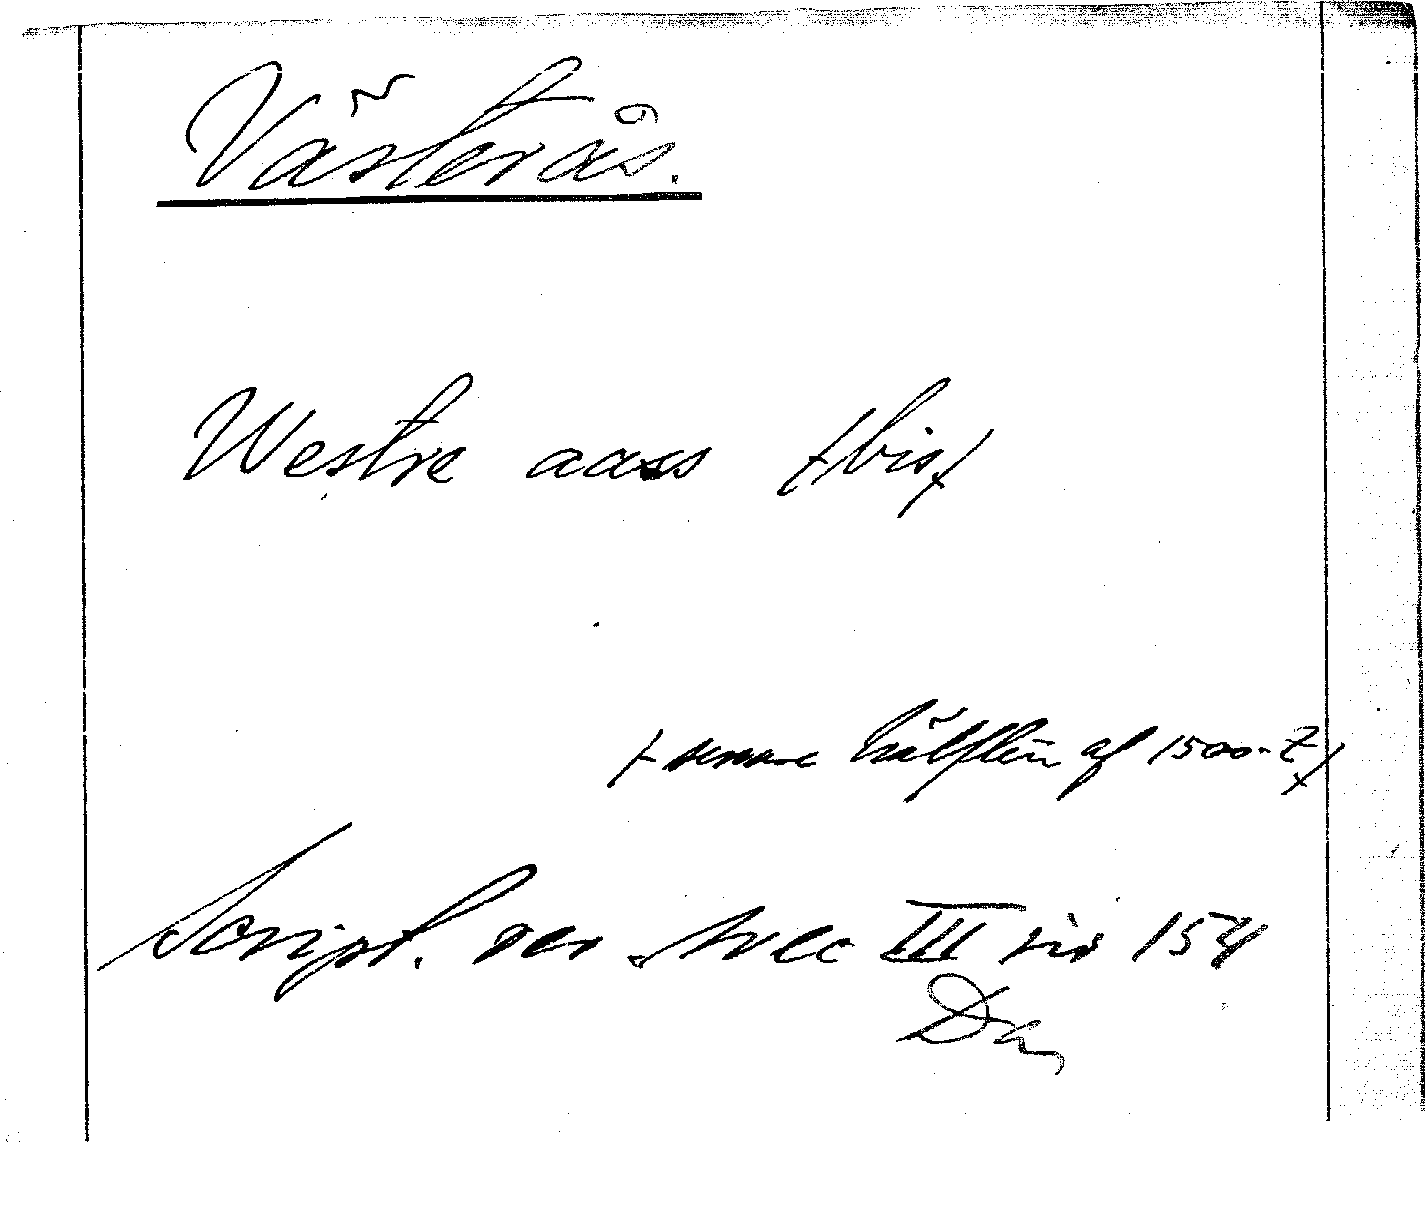 Västerås.
Westre aass (bis)
(senare hälften af 1500-t.)
Script. rer. Svec III sid 154